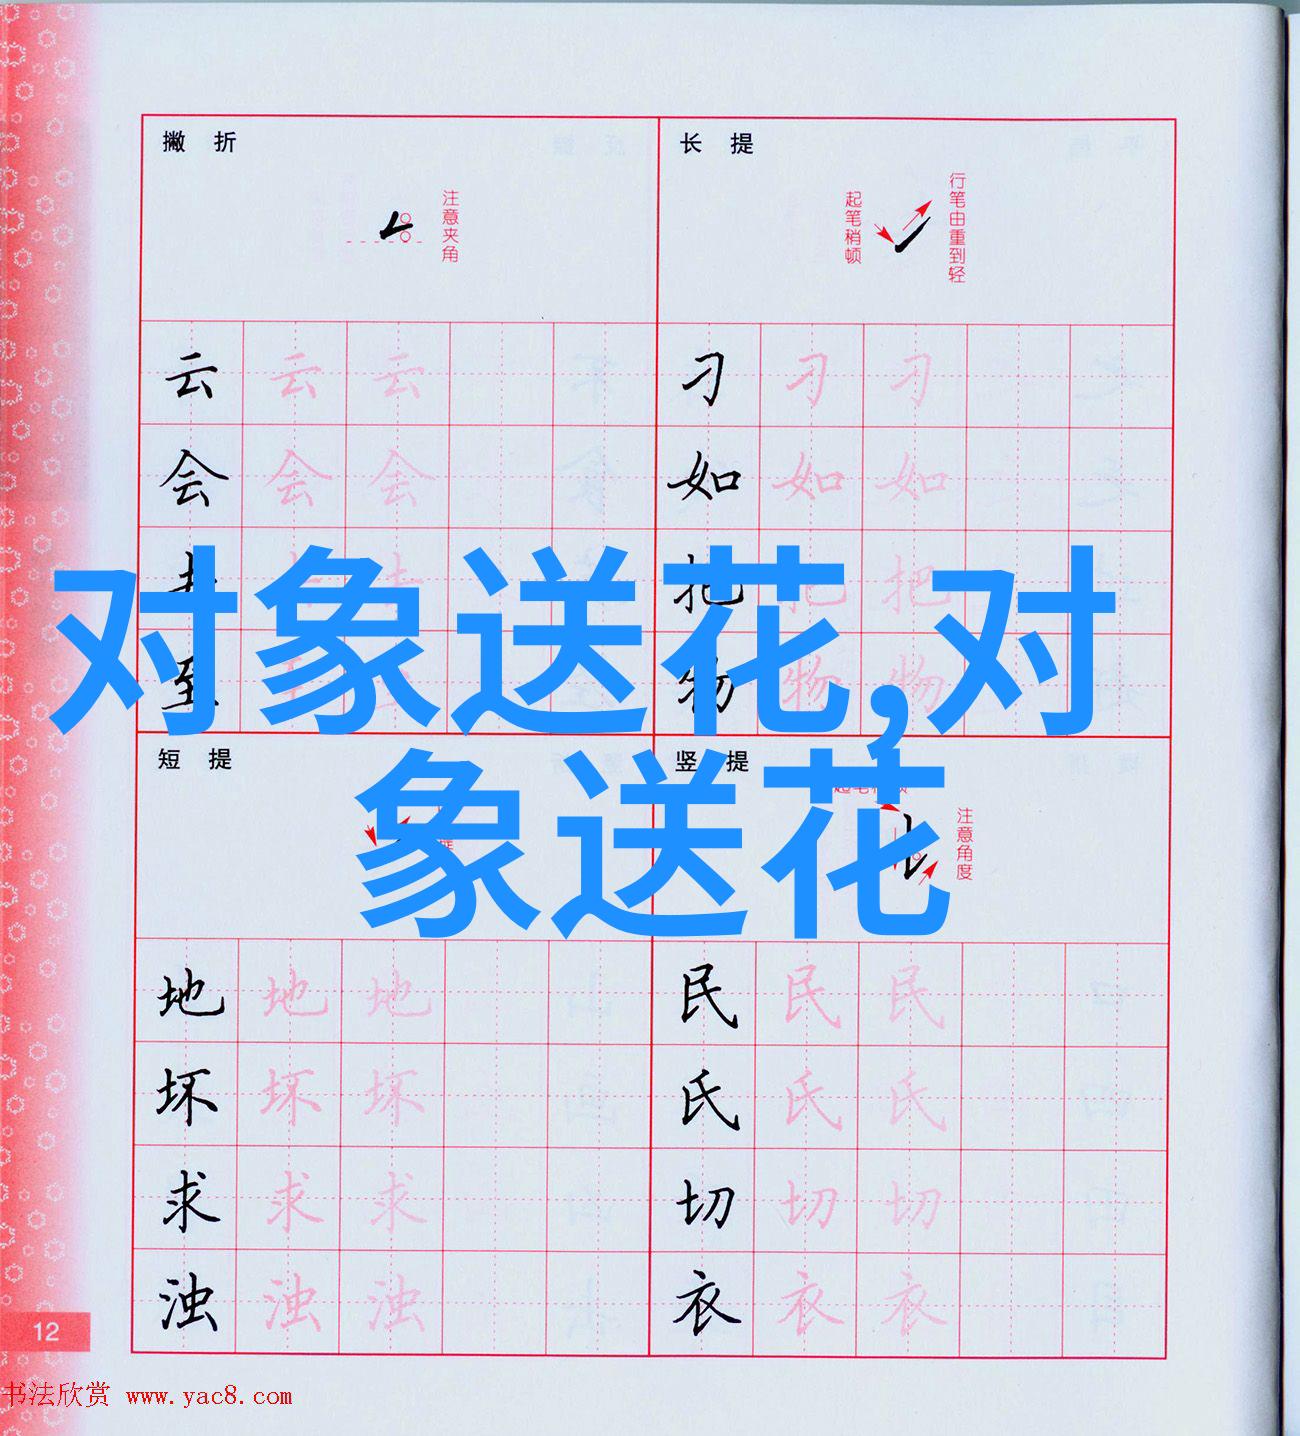 撇 折
注意夹角
长 提
起笔稍顿
行笔由重到轻
云 云 云
刁 刁 刁
会 会 会
如 如 如
去 去 去
把 把 把
至 至 至
物 物 物
对象送花,对
象送花
短 提
竖 提
注意角度
地 地 地
民 民 民
坏 坏 坏
氏 氏 氏
求 求 求
切 切 切
浊 浊 浊
衣 衣 衣
12
书法欣赏 www.yac8.com